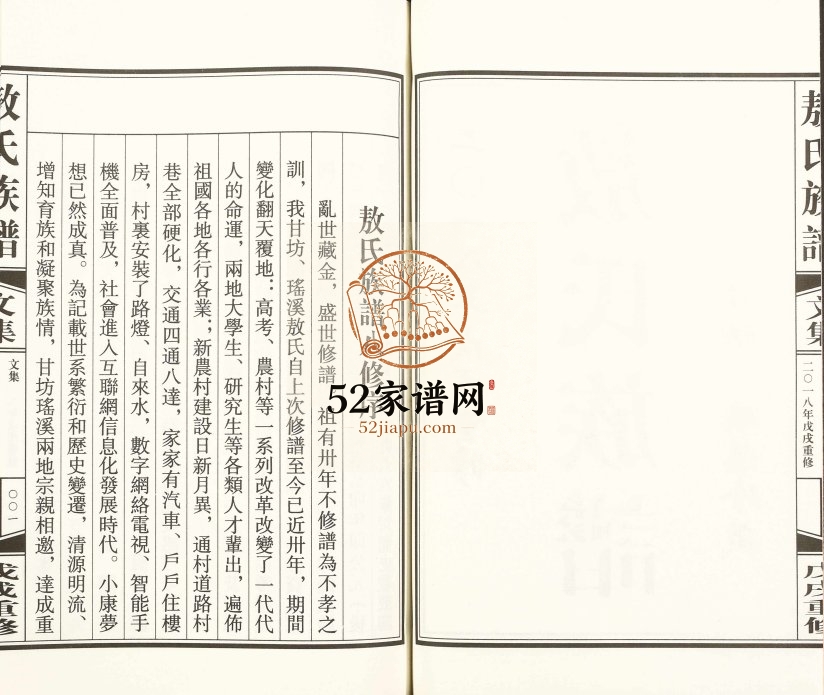 敖氏族譜
文集
二〇一八年戊戌重修
戊戌重修
敖氏族譜 修序
亂世藏金，盛世修譜，祖有卅年不修譜為不孝之
訓，我甘坊、瑤溪敖氏自上次修譜至今已近卅年，期間
變化翻天覆地：高考、農村等一系列改革改變了一代代
人的命運，兩地大學生、研究生等各類人才輩出，遍佈
祖國各地各行各業；新農村建設日新月異，通村道路村
巷全部硬化，交通四通八達，家家有汽車、戶戶住樓
房，村裏安裝了路燈、自來水，數字網絡電視、智能手
機全面普及，社會進入互聯網信息化發展時代。小康夢
想已然成真。為記載世系繁衍和歷史變遷，清源明流、
增知育族和凝聚族情，甘坊瑤溪兩地宗親相邀，達成重
敖氏族譜
文集
文集
〇〇一
戊戌重修
52家谱网
52jiapu.com